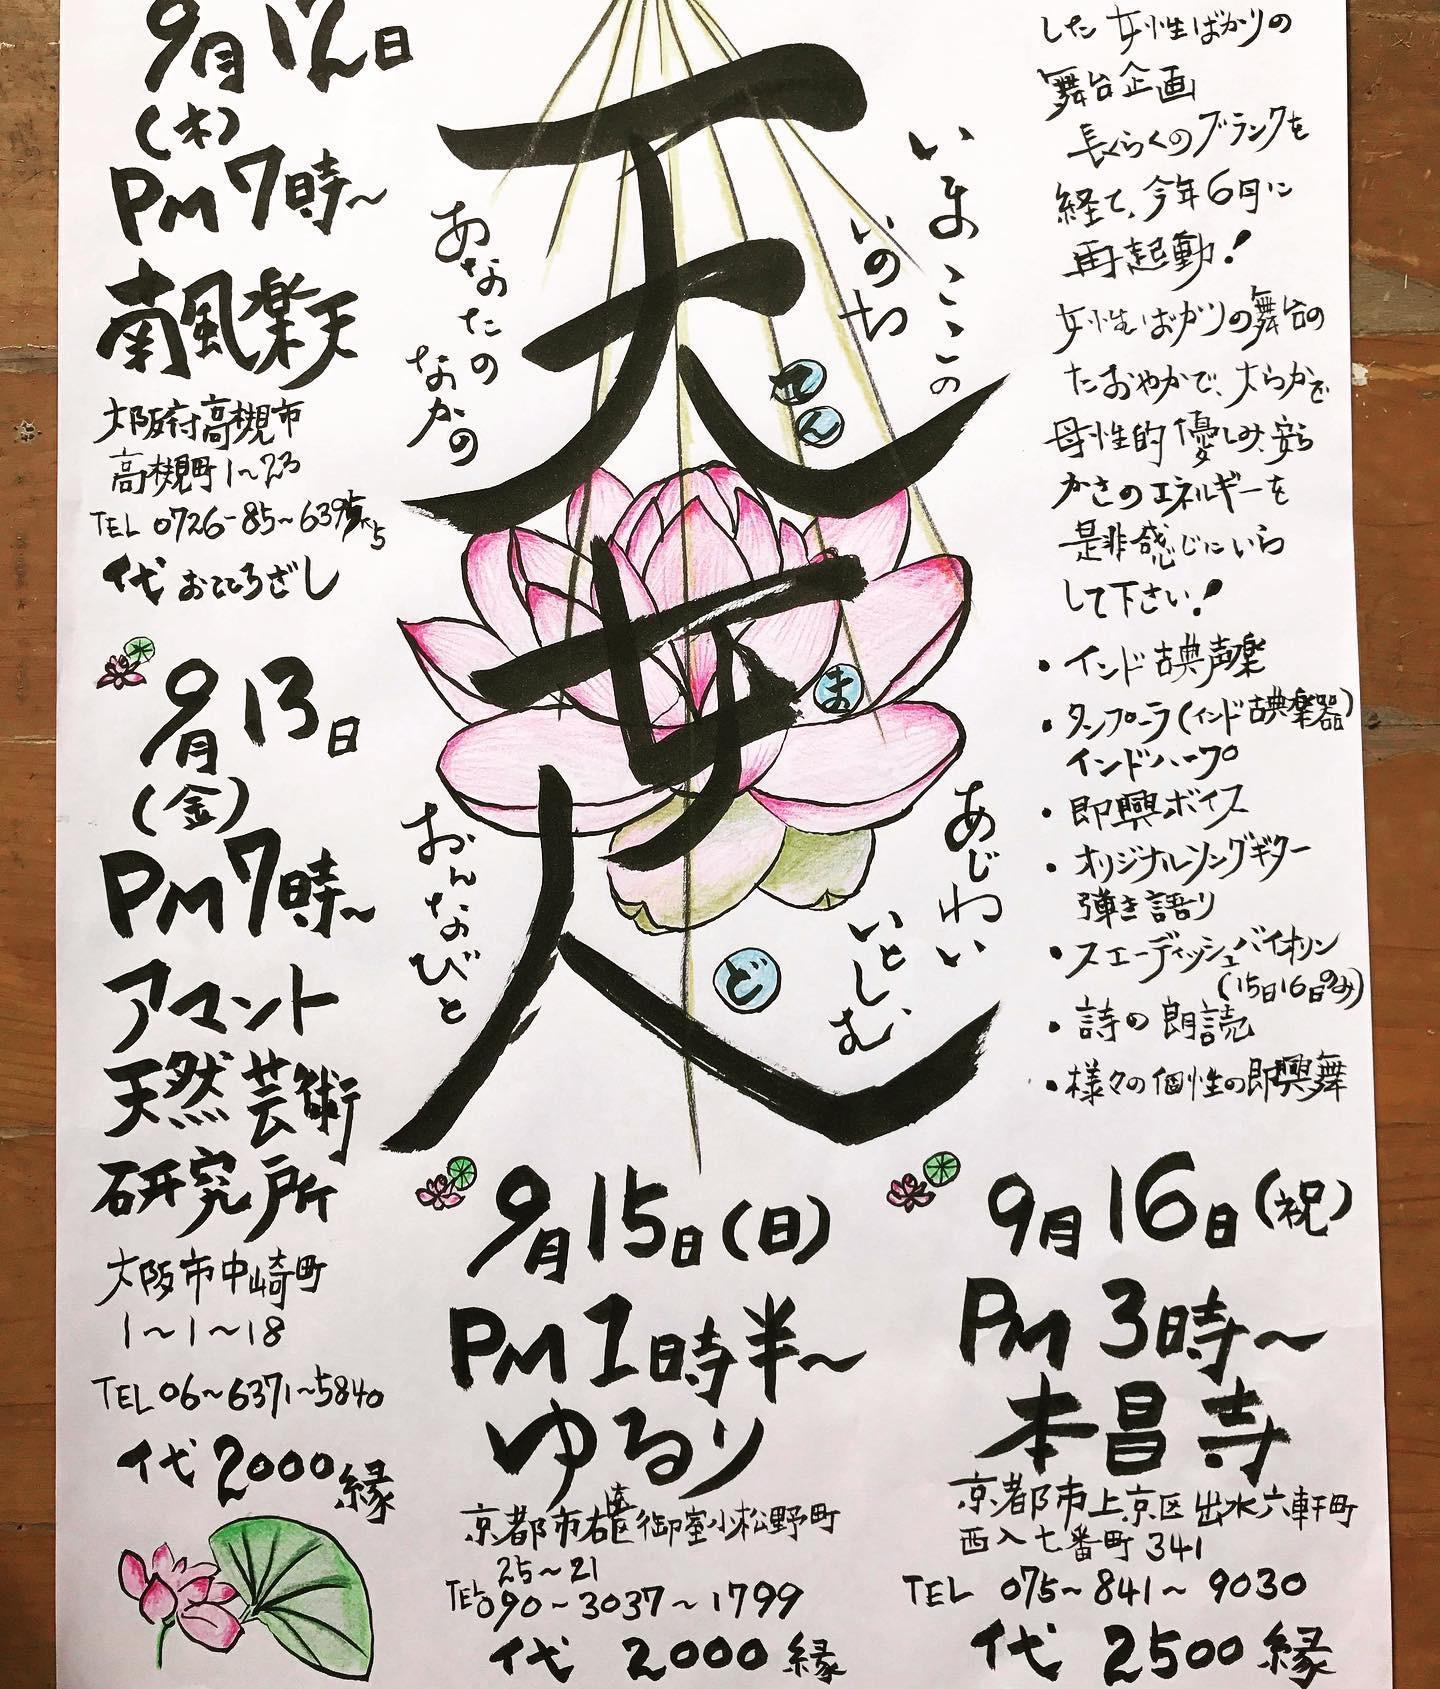 9月12日
(木)
PM7時〜
南風楽天
大阪府高槻市
高槻町1〜23
TEL 0726-85〜6395
代 おこころざし
9月13日
(金)
PM7時〜
アマント
天然芸術
研究所
大阪市中崎町
1〜1〜18
TEL 06〜6371〜5840
代 2000縁
天女人
てん
ま
ど
いまここの
いのち
あなたの
なかの
あじわい
いとしむ
おんなびと
した女性ばかりの
舞台企画
長らくのブランクを
経て、今年6月に
再起動!
女性ばかりの舞台の
たおやかで、大らかで
母性的優しみ、安ら
かさのエネルギーを
是非感じにいら
して下さい!
・インド古典声楽
・タンプーラ(インド古典楽器)
インドハープ
・即興ボイス
・オリジナルソングギター
弾き語り
・スエーディッシュバイオリン
(15日16日のみ)
・詩の朗読
・様々の個性の即興舞
9月15日(日)
PM1時半〜
ゆるり
京都市右京区御室小松野町
25〜21
TEL 090〜3037〜1799
代 2000縁
9月16日(祝)
PM3時〜
本昌寺
京都市上京区出水六軒町
西入七番町341
TEL 075〜841〜9030
代 2500縁